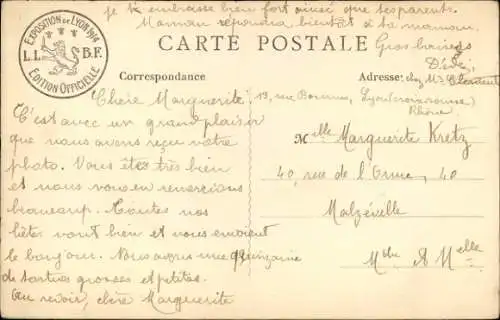 je t'embrasse bien fort ainsi que tes parents.
Maman répondra bientôt à ta maman.
EXPOSITION DE LYON 1914
L.L. B.F.
ÉDITION OFFICIELLE
CARTE POSTALE
Gros baisers
Correspondance
Adresse: chez Mr
Chère Marguerite
Lyon (croix rousse)
Rhône
C'est avec un grand plaisir
que nous avons reçu votre
photo. Vous êtes très bien
et nous vous en remercions
beaucoup. Toutes nos
bêtes vont bien et vous envoient
le bonjour. Nous avons une quinzaine
de tortues grosses et petites.
Au revoir, chère Marguerite
Melle Marguerite Kretz
40, rue de l'Orme, 40
Malzéville
Mthe & Melle